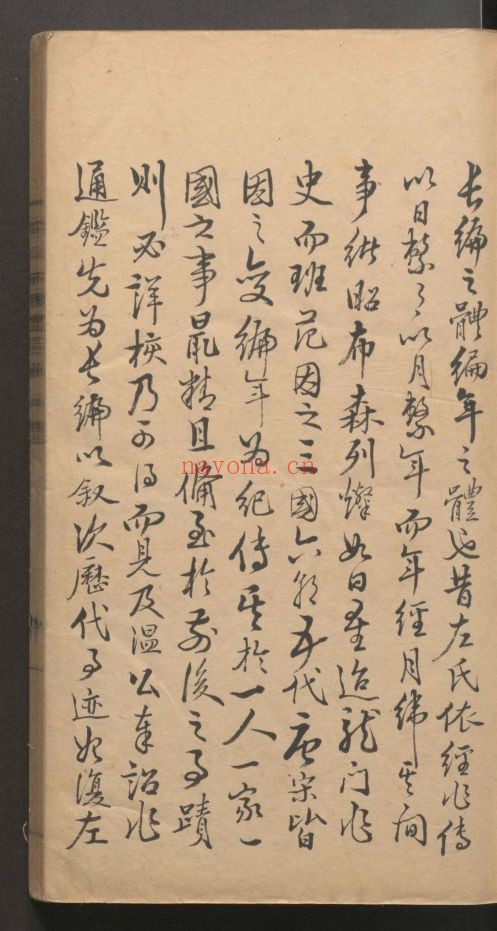 長編之體編年之體也昔左氏依經作傳
以日繫月以月繫年而年經月緯其間
事繇昭布森列燦如日星迨龍门作
史而班范因之三國六朝五代唐宋皆
因之變編年为紀傳其於一人一家一
國之事最精且备至於前後之事蹟
則必詳核乃可得而見及温公奉詔作
通鑑先为長編以叙次歷代事迹始復左
nayona.cn